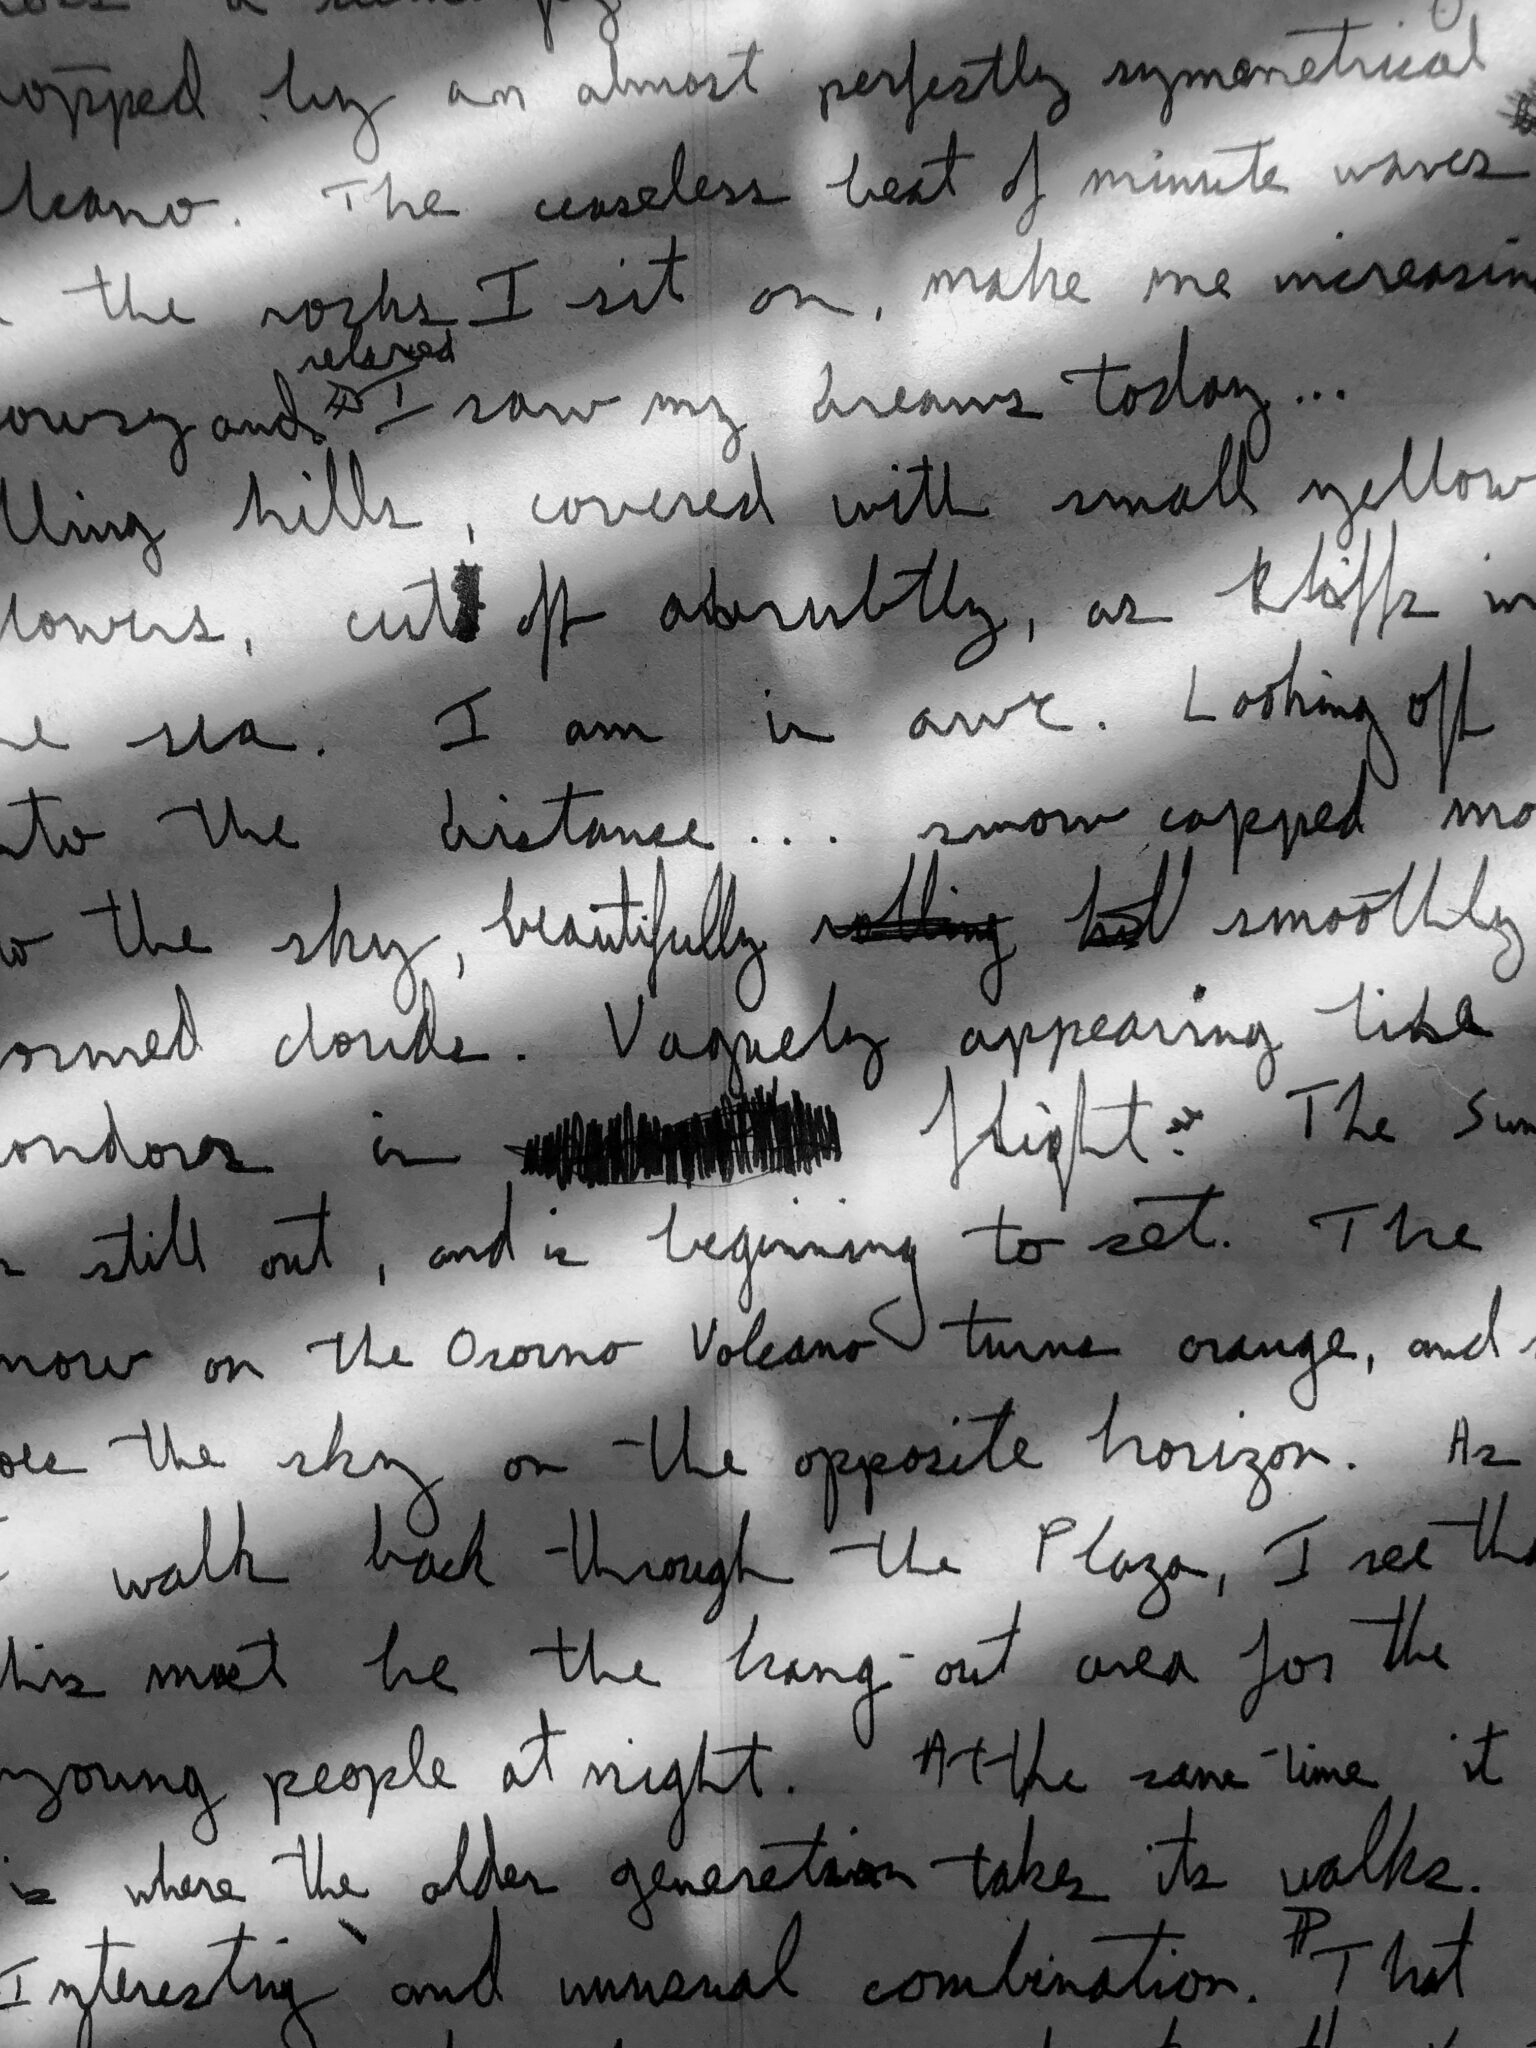 topped by an almost perfectly symmetrical
lcano. The ceaseless beat of minute waves
the rocks I sit on, make me increasin
relaxed
owsy and I saw my dreams today...
lling hills, covered with small yellow
lowers, cut off abrubtly, as kliffs in
he sea. I am in awe. Looking off
nto the distance... snow capped mo
o the sky, beautifully rolling hill smoothly
ormed clouds. Vaguely appearing like
ondores in flight. The Sun
still out, and is beginning to set. The
now on the Osorno Volcano turns orange, and
oes the sky on the opposite horizon. As
walk back through the Plaza, I see tha
his must be the hang-out area for the
young people at night. At the same time it
is where the older generation takes its walks.
Interesting and unusual combination. ¶ That